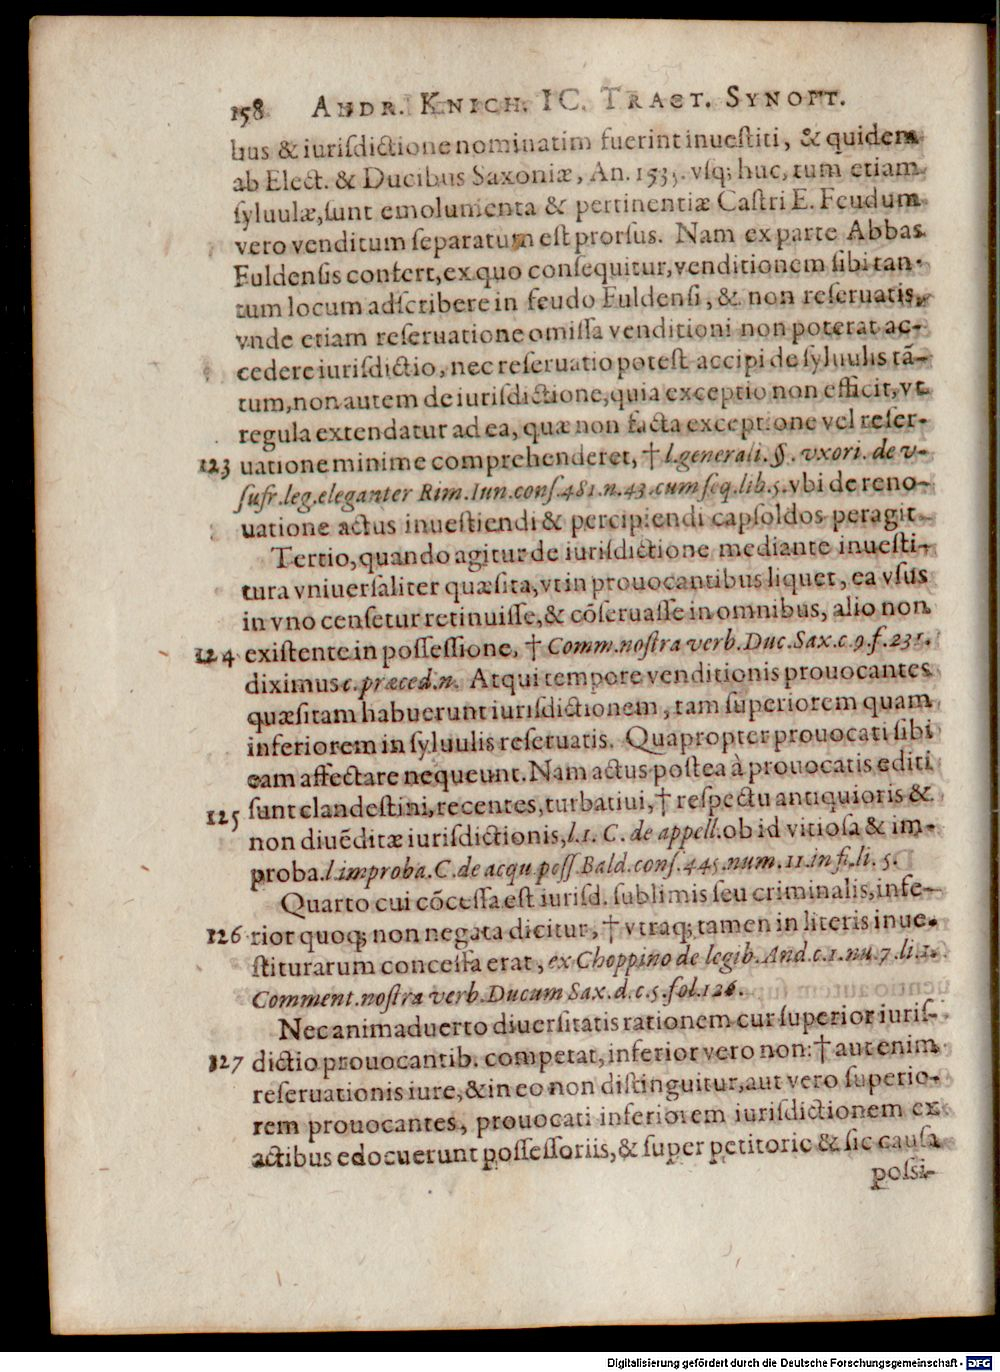 158 ANDR. KNICH. IC. TRACT. SYNOPT.
bus & iuriſdictione nominatim fuerint inueſtiti, & quidem
ab Elect. & Ducibus Saxoniæ, An. 1533. vſq; huc, tum etiam
ſyluulæ, ſunt emolumenta & pertinentiæ Caſtri E. Feudum
vero venditum ſeparatum eſt prorſus. Nam ex parte Abbas
Fuldenſis confert, ex quo conſequitur, venditionem ſibi tan-
tum locum adſcribere in feudo Fuldenſi, & non reſeruatis,
vnde etiam reſeruatione omiſſa venditioni non poterat ac-
cedere iuriſdictio, nec reſeruatio poteſt accipi de ſyluulis tā-
tum, non autem de iuriſdictione, quia exceptio non efficit, vt
regula extendatur ad ea, quæ non facta exceptione vel reſer-
123 uatione minime comprehenderet, † l. generali. §. vxori. de v-
ſufr. leg. eleganter Rim. Iun. conſ. 481. n. 43. cum ſeq. lib. 5. vbi de reno-
uatione actus inueſtiendi & percipiendi capſoldos peragit.
Tertio, quando agitur de iuriſdictione mediante inueſti-
tura vniuerſaliter quæſita, vt in prouocantibus liquet, ea vſus
in vno cenſetur retinuiſſe, & cōſeruaſſe in omnibus, alio non
124 exiſtente in poſſeſſione, † Comm. noſtra verb. Duc. Sax. c. 9. f. 231.
diximus c. præced. n. Atqui tempore venditionis prouocantes
quæſitam habuerunt iuriſdictionem, tam ſuperiorem quam
inferiorem in ſyluulis reſeruatis. Quapropter prouocati ſibi
eam affectare nequeunt. Nam actus poſtea à prouocatis editi
125 ſunt clandeſtini, recentes, turbatiui, † reſpectu antiquioris &
non diuēditæ iuriſdictionis, l. 1. C. de appell. ob id vitioſa & im-
proba. l. improba. C. de acqu. poſſ. Bald. conſ. 445. num. 11. in fi. li. 5.
Quarto cui cōceſſa eſt iuriſd. ſublimis ſeu criminalis, infe-
126 rior quoq; non negata dicitur, † vtraq; tamen in literis inue-
ſtiturarum conceſſa erat, ex Choppino de legib. And. c. 1. nu. 7. li. 1.
Comment. noſtra verb. Ducum Sax. d. c. 5. fol. 126.
Nec animaduerto diuerſitatis rationem cur ſuperior iuriſ-
127 dictio prouocantib. competat, inferior vero non: † aut enim
reſeruationis iure, & in eo non diſtinguitur, aut vero ſuperio-
rem prouocantes, prouocati inferiorem iuriſdictionem ex
actibus edocuerunt poſſeſſoriis, & ſuper petitorio & ſic cauſa
poſſi-
Digitalisierung gefördert durch die Deutsche Forschungsgemeinschaft - DFG